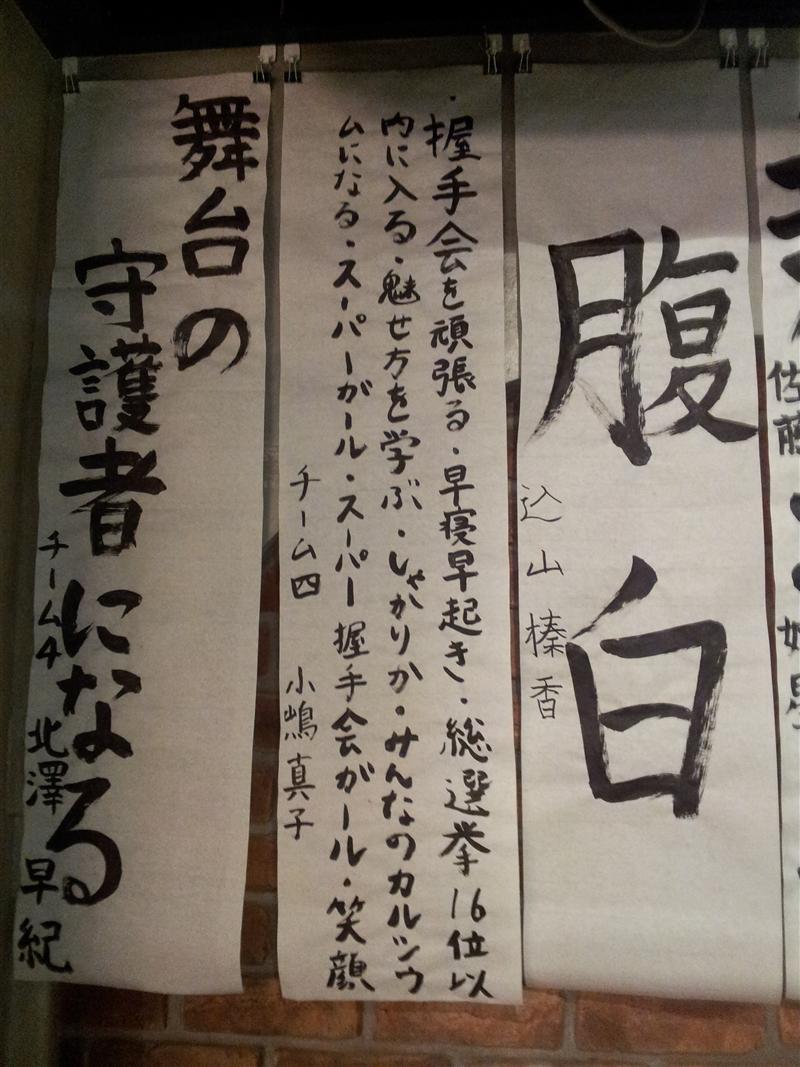 佐藤
腹白
込山榛香
・握手会を頑張る・早寝早起き・総選挙16位以
内に入る・魅せ方を学ぶ・しゃかりか・みんなのカルシウ
ムになる・スーパーガール・スーパー握手会ガール・笑顔
チーム四 小嶋真子
舞台の
守護者になる。
チーム4 北澤早紀